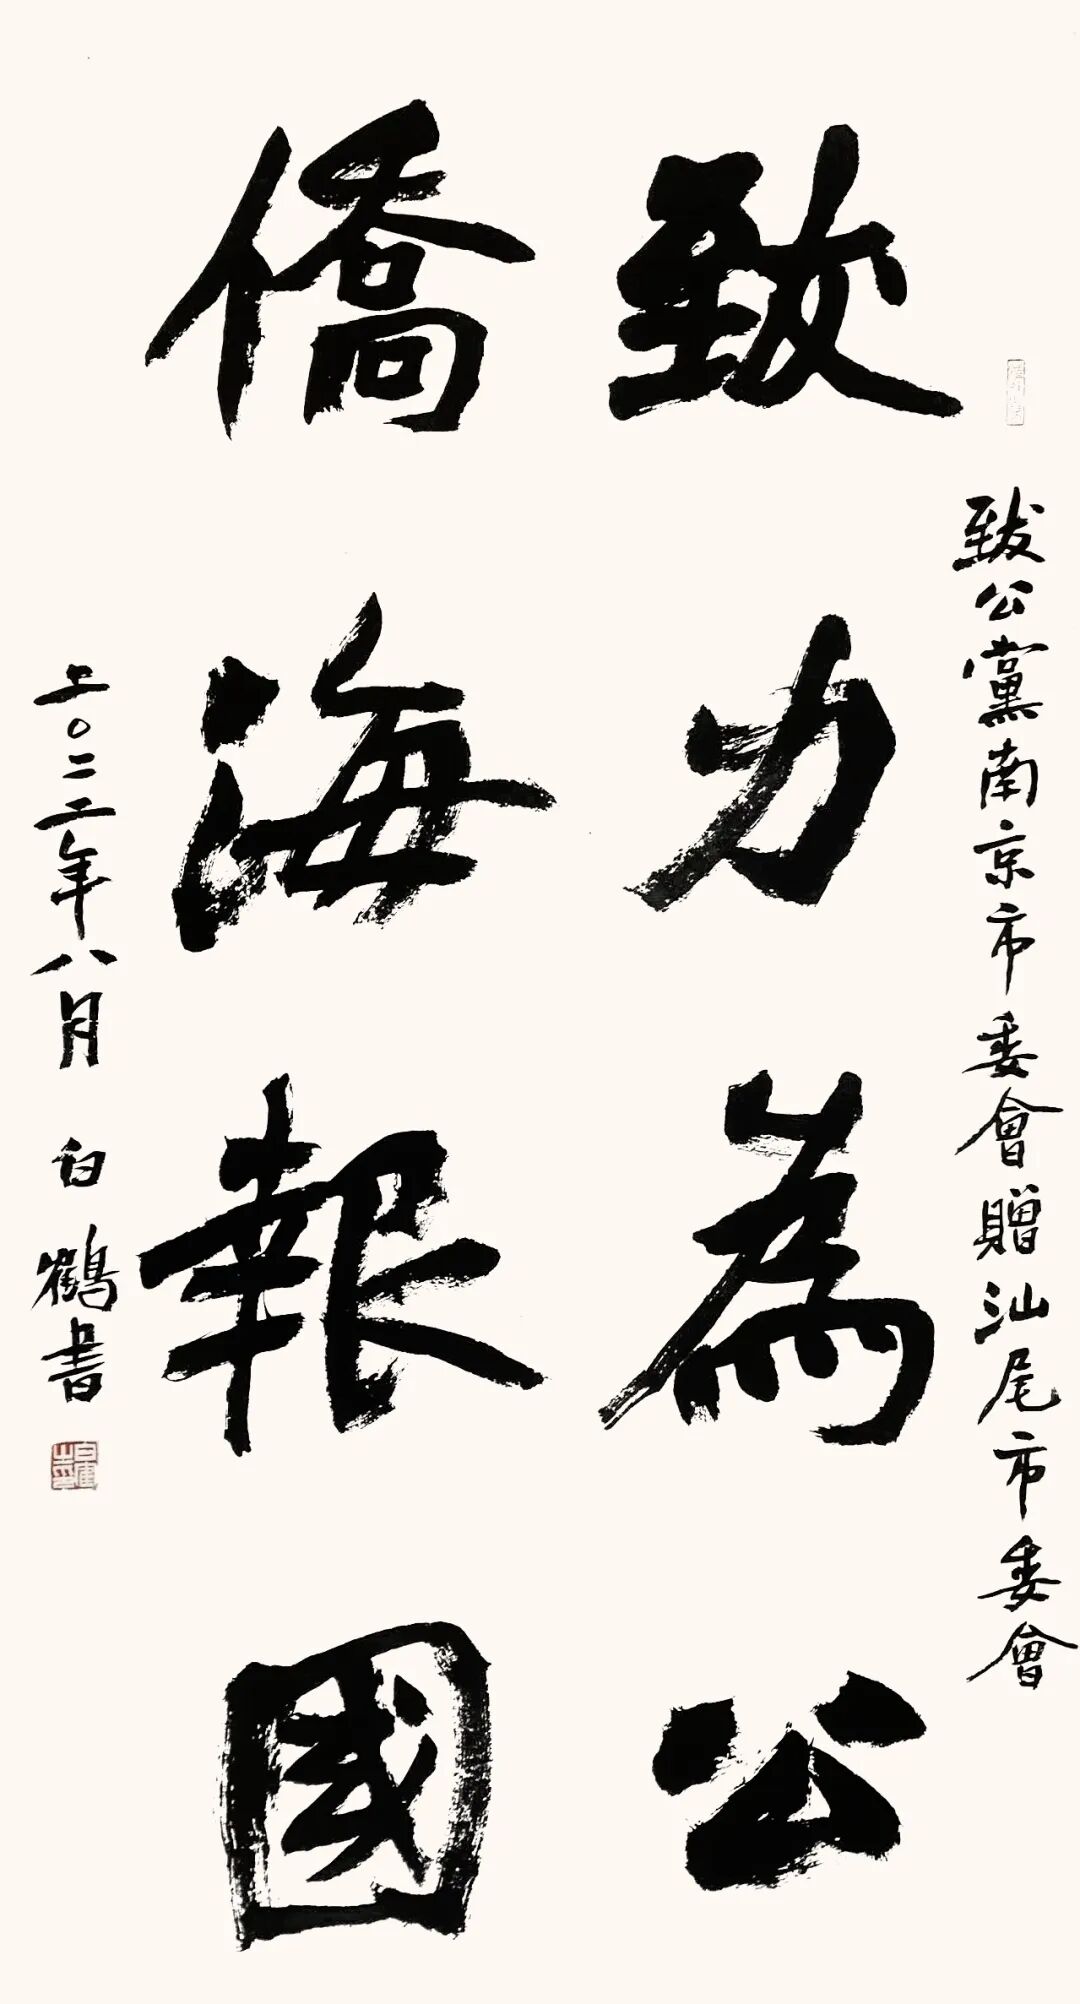 致公黨南京市委會贈汕尾市委會
致力為公
僑海報國
二〇二二年八月 白鶴書